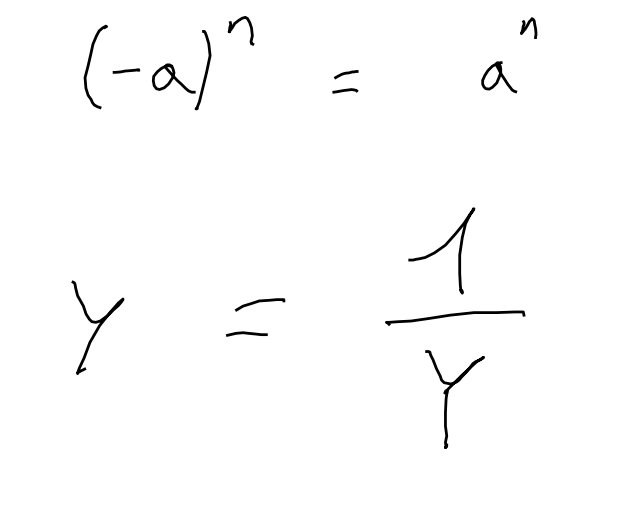 (-a)^n = a^n
y = 1/Y